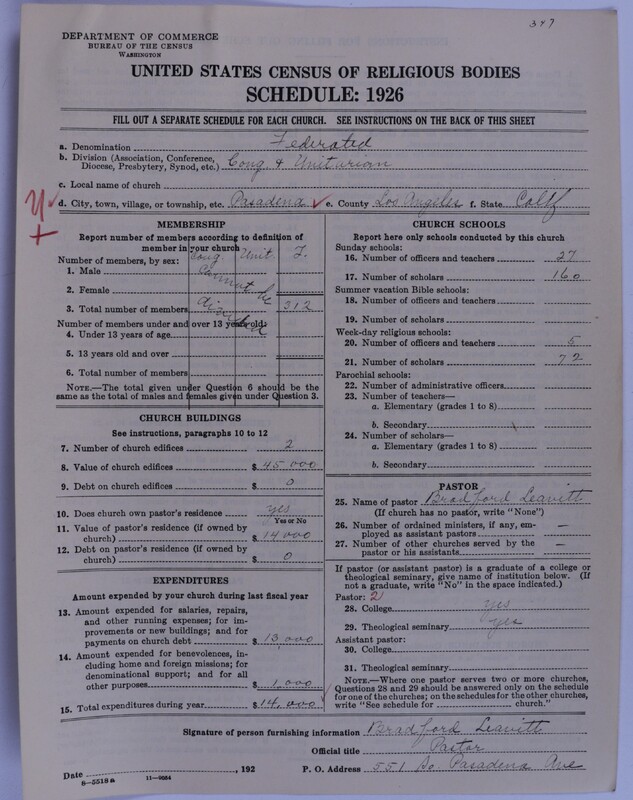 347
DEPARTMENT OF COMMERCE
BUREAU OF THE CENSUS
WASHINGTON
UNITED STATES CENSUS OF RELIGIOUS BODIES
SCHEDULE: 1926
FILL OUT A SEPARATE SCHEDULE FOR EACH CHURCH. SEE INSTRUCTIONS ON THE BACK OF THIS SHEET
a. Denomination Federated
b. Division (Association, Conference, Diocese, Presbytery, Synod, etc.) Cong & Unitarian
c. Local name of church
d. City, town, village, or township, etc. Pasadena e. County Los Angeles f. State Calif
MEMBERSHIP
Report number of members according to definition of member in your church
Number of members, by sex: Cong Unit T.
1. Male Cannot be
2. Female
3. Total number of members 312
Number of members under and over 13 years old:
4. Under 13 years of age
5. 13 years old and over
6. Total number of members
NOTE.—The total given under Question 6 should be the same as the total of males and females given under Question 3.
CHURCH BUILDINGS
See instructions, paragraphs 10 to 12
7. Number of church edifices 2
8. Value of church edifices $ 45 000
9. Debt on church edifices $ 0
10. Does church own pastor's residence yes
Yes or No
11. Value of pastor's residence (if owned by church) $ 14 000
12. Debt on pastor's residence (if owned by church) $ 0
EXPENDITURES
Amount expended by your church during last fiscal year
13. Amount expended for salaries, repairs, and other running expenses; for improvements or new buildings; and for payments on church debt $ 13,000
14. Amount expended for benevolences, including home and foreign missions; for denominational support; and for all other purposes $ 1,000
15. Total expenditures during year $ 14,000
CHURCH SCHOOLS
Report here only schools conducted by this church
Sunday schools:
16. Number of officers and teachers 27
17. Number of scholars 160
Summer vacation Bible schools:
18. Number of officers and teachers
19. Number of scholars
Week-day religious schools:
20. Number of officers and teachers 5
21. Number of scholars 72
Parochial schools:
22. Number of administrative officers
23. Number of teachers—
a. Elementary (grades 1 to 8)
b. Secondary
24. Number of scholars—
a. Elementary (grades 1 to 8)
b. Secondary
PASTOR
25. Name of pastor Bradford Leavitt
(If church has no pastor, write "None")
26. Number of ordained ministers, if any, employed as assistant pastors —
27. Number of other churches served by the pastor or his assistants —
If pastor (or assistant pastor) is a graduate of a college or theological seminary, give name of institution below. (If not a graduate, write "No" in the space indicated.)
Pastor: 2
28. College yes
29. Theological seminary yes
Assistant pastor:
30. College
31. Theological seminary
NOTE.—Where one pastor serves two or more churches, Questions 28 and 29 should be answered only on the schedule for one of the churches; on the schedules for the other churches, write "See schedule for church."
Signature of person furnishing information Bradford Leavitt
Official title Pastor
Date , 192 P. O. Address 551 So. Pasadena Ave
8—5518a 11—9664